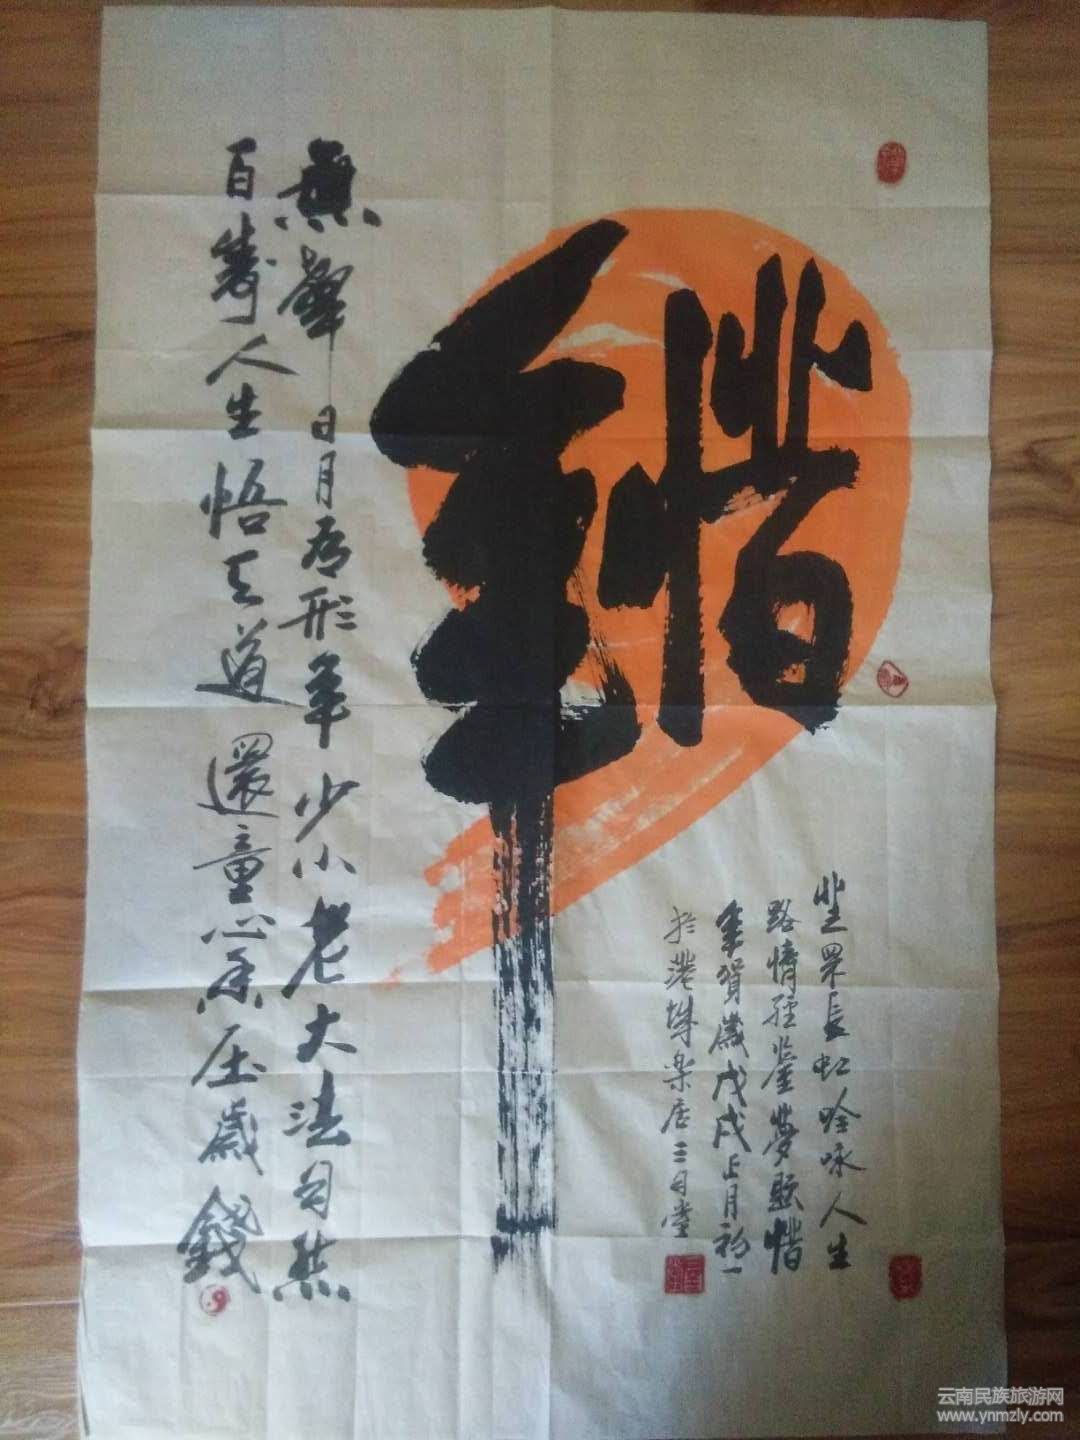 惜
年
無聲日月有形年少小老大法自然
百壽人生悟天道還童心压歲錢
坐罘長虹吟咏人生
路情経鉴夢联惜
年賀歲戊戌正月初一
於港城楽三日堂
云南民族旅游网
www.ynmzly.com